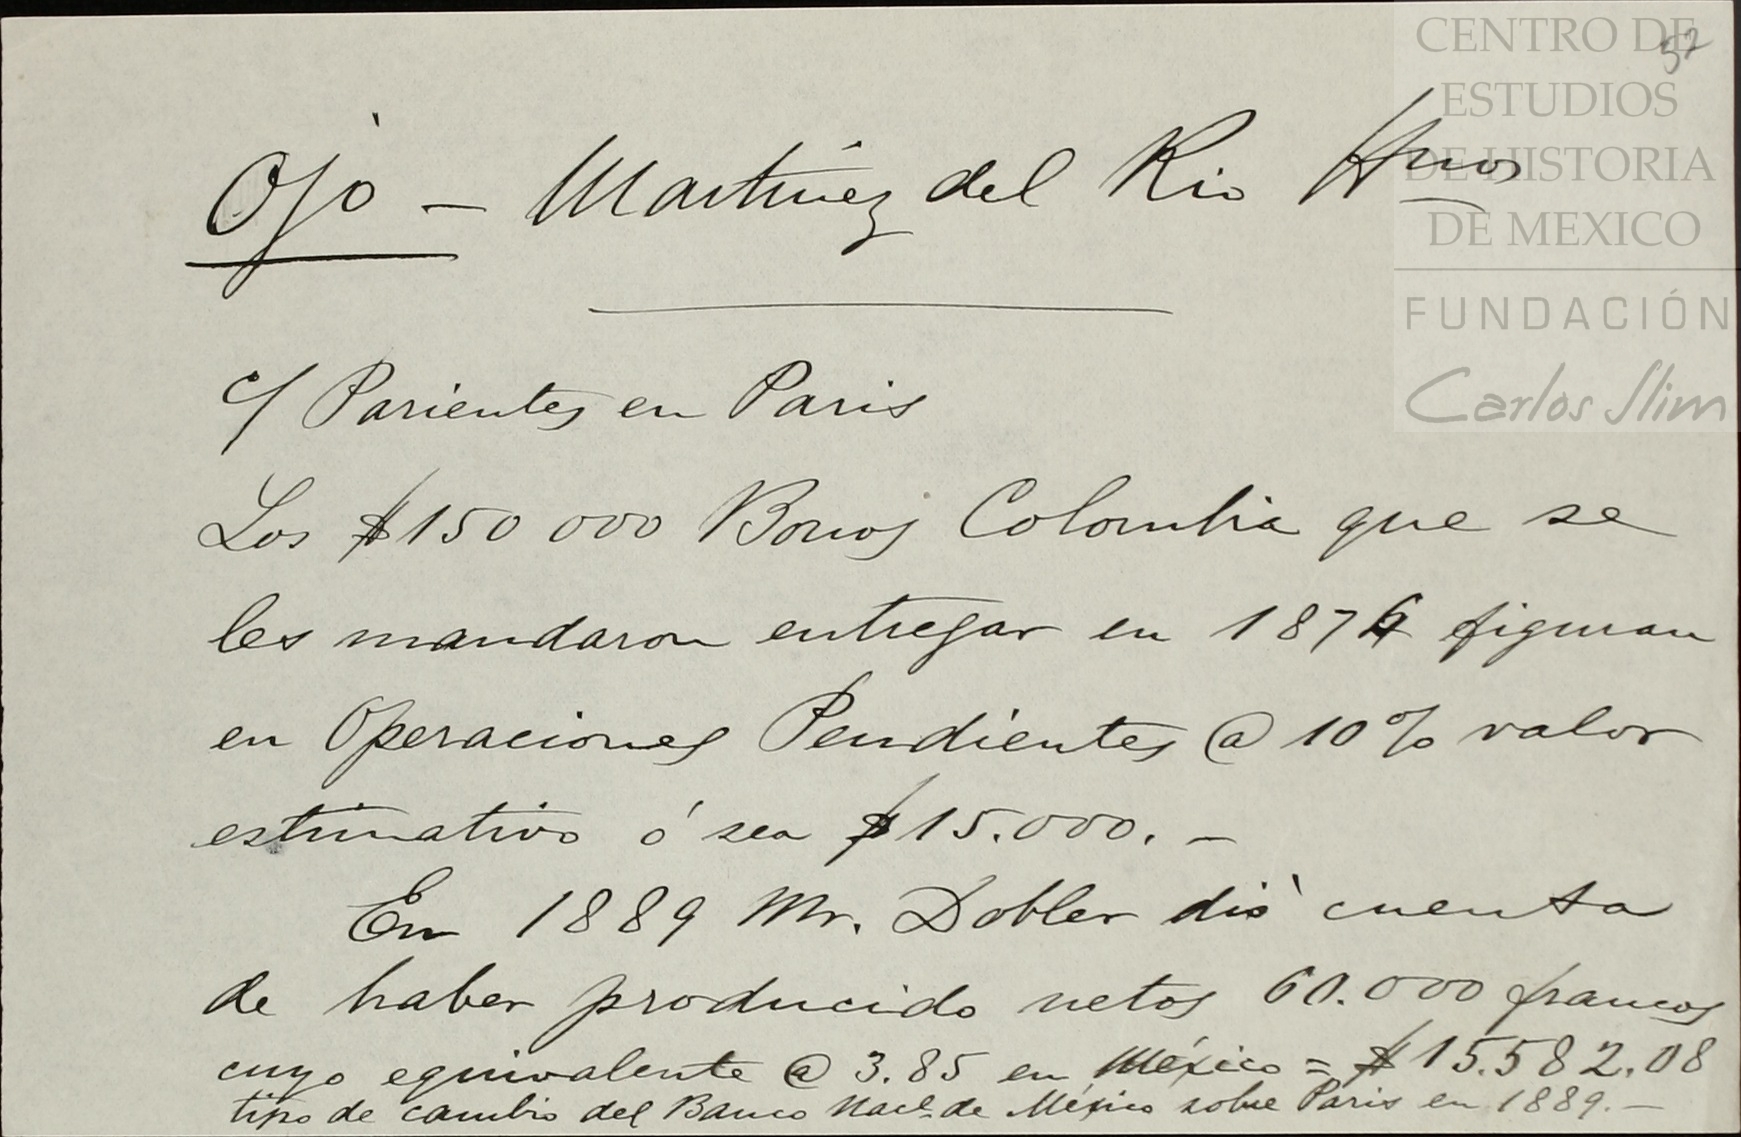 CENTRO DE
ESTUDIOS
DE HISTORIA
DE MEXICO
FUNDACIÓN
Carlos Slim
57
Ojó - Martínez del Rio Hnos
c/ Parientes en Paris
Los $150 000 Bonos Colombia que se
les mandaron entregar en 1876 figuran
en Operaciones Pendientes @ 10% valor
estimativo ó sea $15.000.-
En 1889 Mr. Dobler dió cuenta
de haber producido netos 60.000 francos
cuyo equivalente @ 3.85 en México = $15.582.08
tipo de cambio del Banco Nacl. de México sobre Paris en 1889.-